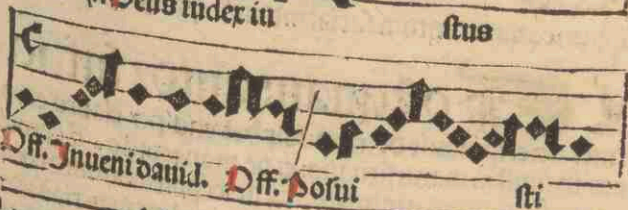 Deus iudex iu stus
Off. Inueni dauid. Off. Posui sti